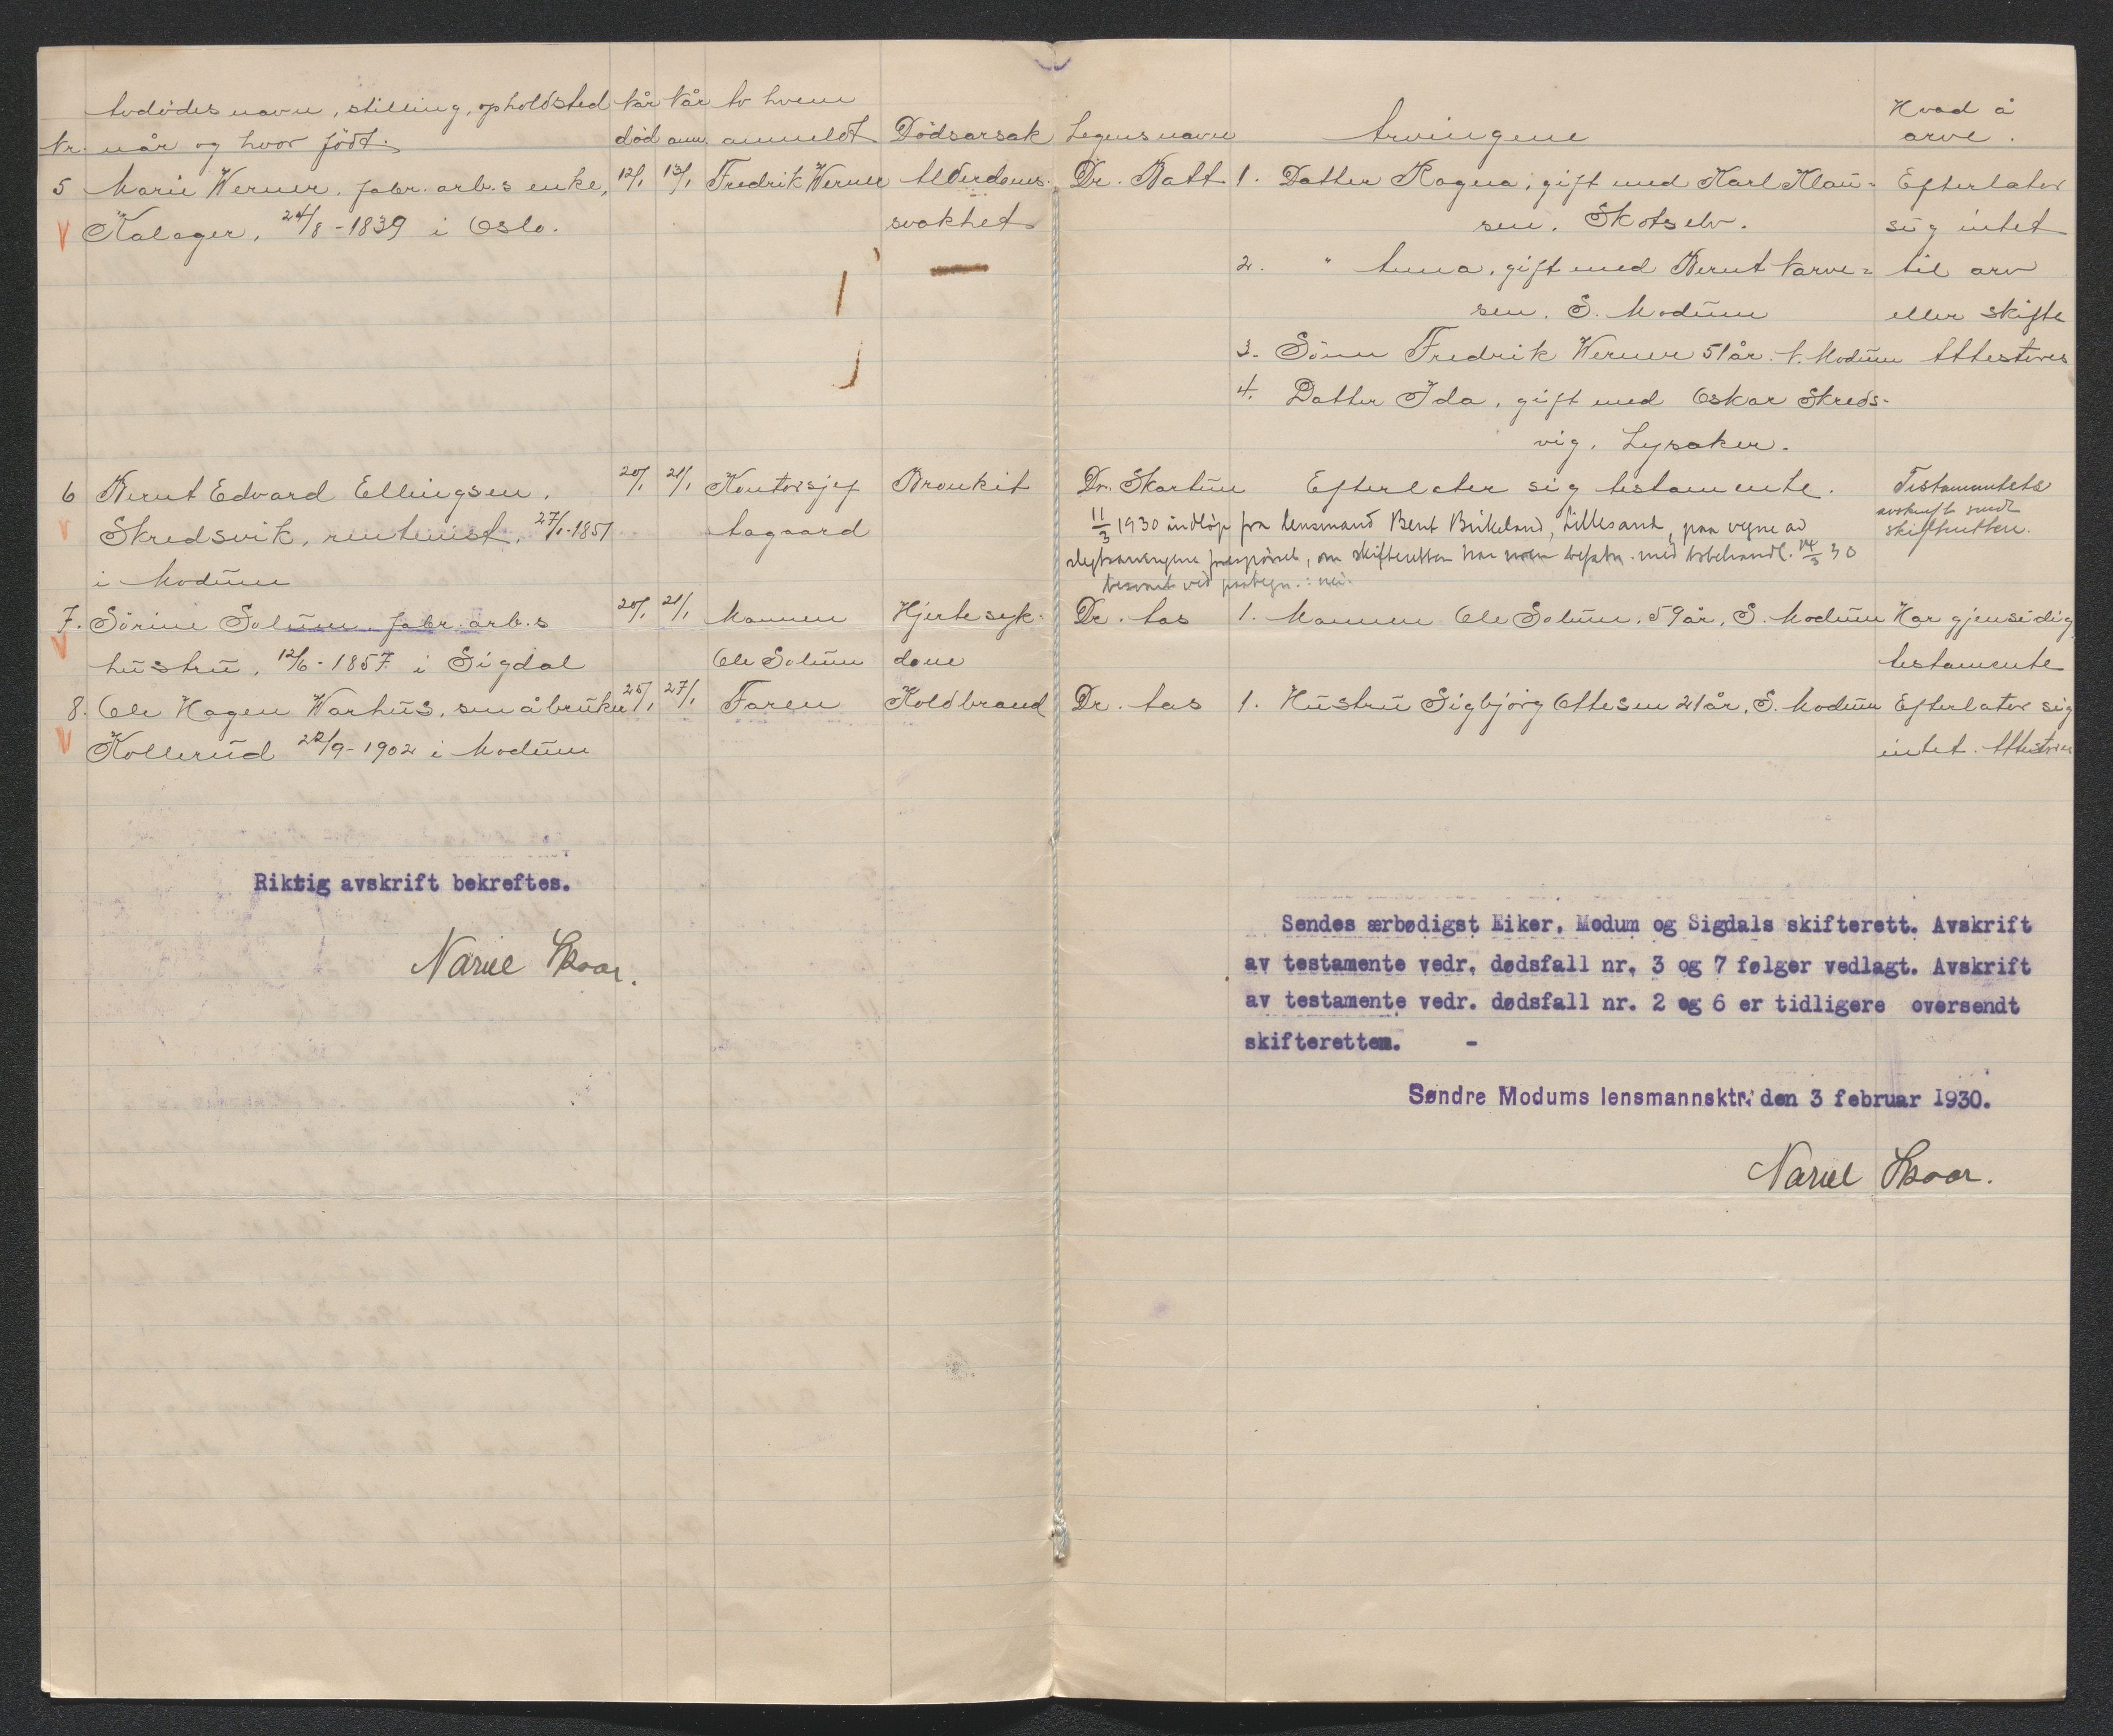 Avdødes navn, stilling, opholdsted Når Når Av hvem Hvad å
Nr. når og hvor født. død anm. anmeldt Dødsarsak Legens navn Arvingene arve.
5 Marie Werner, fabr. arb.s enke, 12/1 13/1 Fredrik Werner Alderdoms- Dr. Batt 1. Datter Ragna, gift med Karl Klau= Efterlater
V Kalager, 24/8-1839 i Oslo. svakhet sen, Skotselv. sig intet
2. " Anna, gift med Bernt Narve= til arv
sen, S. Modum eller skifte
3. Sønn Fredrik Werner 51 år. N. Modum Attesteres
4. Datter Ida, gift med Oskar Skreds-
vig, Lysaker.
6 Bernt Edvard Ellingsen, 20/1 21/1 Kontorsjef Bronkit Dr. Skartum Efterlater sig testamente. Testamentets
V Skredsvik, rentenist, 27/1-1851 Aagaard 11/3 1930 indløp fra lensmand Bent Birkeland, Lillesand, paa vegne av avskrift sendt skifteretten.
i Modum om skifteretten har med bobehandl. 14/3 30
besvart ved paategn.: nei.
7. Sørine Solum, fabr. arb.s 20/1 21/1 Mannen Hjertesyk- Dr. Aas 1. Mannen Ole Solum, 59 år, S. Modum Har gjensidig
V hustru, 12/6-1857 i Sigdal Ole Solum dom testamente
8. Ole Hagen Warhus, småbruker 25/1 27/1 Faren Koldbrand Dr. Aas 1. Hustru Sigbjørg Ottesen 21 år, S. Modum Efterlater sig
V Kollerud 22/9-1902 i Modum intet. Attesteres
Riktig avskrift bekreftes.
Sendes ærbødigst Eiker, Modum og Sigdals skifterett. Avskrift
av testamente vedr. dødsfall nr. 3 og 7 følger vedlagt. Avskrift
av testamente vedr. dødsfall nr. 2 og 6 er tidligere oversendt
skifteretten. -
Søndre Modums lensmannsktr. den 3 februar 1930.